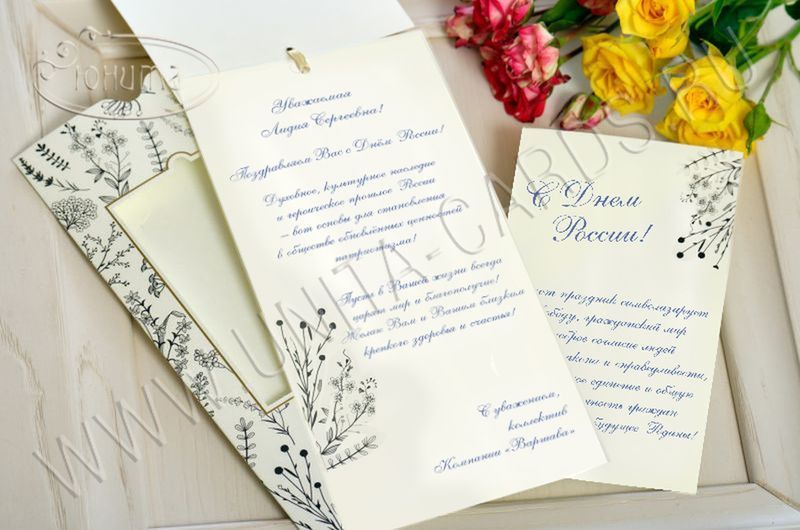 Юнита
Уважаемая
Лидия Сергеевна!
Поздравляем Вас с Днём России!
Духовное, культурное наследие
и героическое прошлое России
– вот основы для становления
в обществе обновлённых ценностей
патриотизма!
Пусть в Вашей жизни всегда
царят мир и благополучие!
Желаю Вам и Вашим близким
крепкого здоровья и счастья!
С уважением,
коллектив
Компании «Варшава»
С Днем
России!
праздник символизирует
гражданский мир
согласие людей
и справедливости,
единение и общую
граждан
будущее Родины!
WWW.UNITA-CARDS.RU